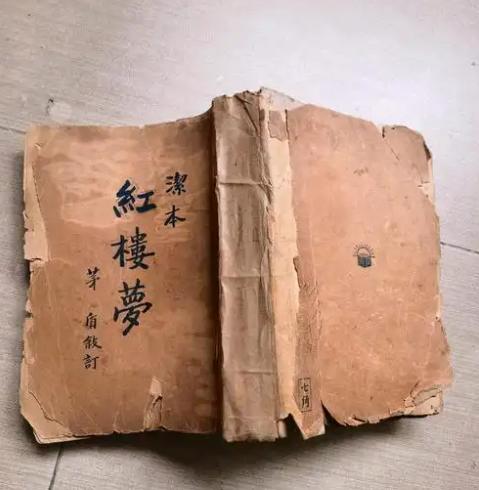 潔本
紅樓夢
茅盾敘訂
七角